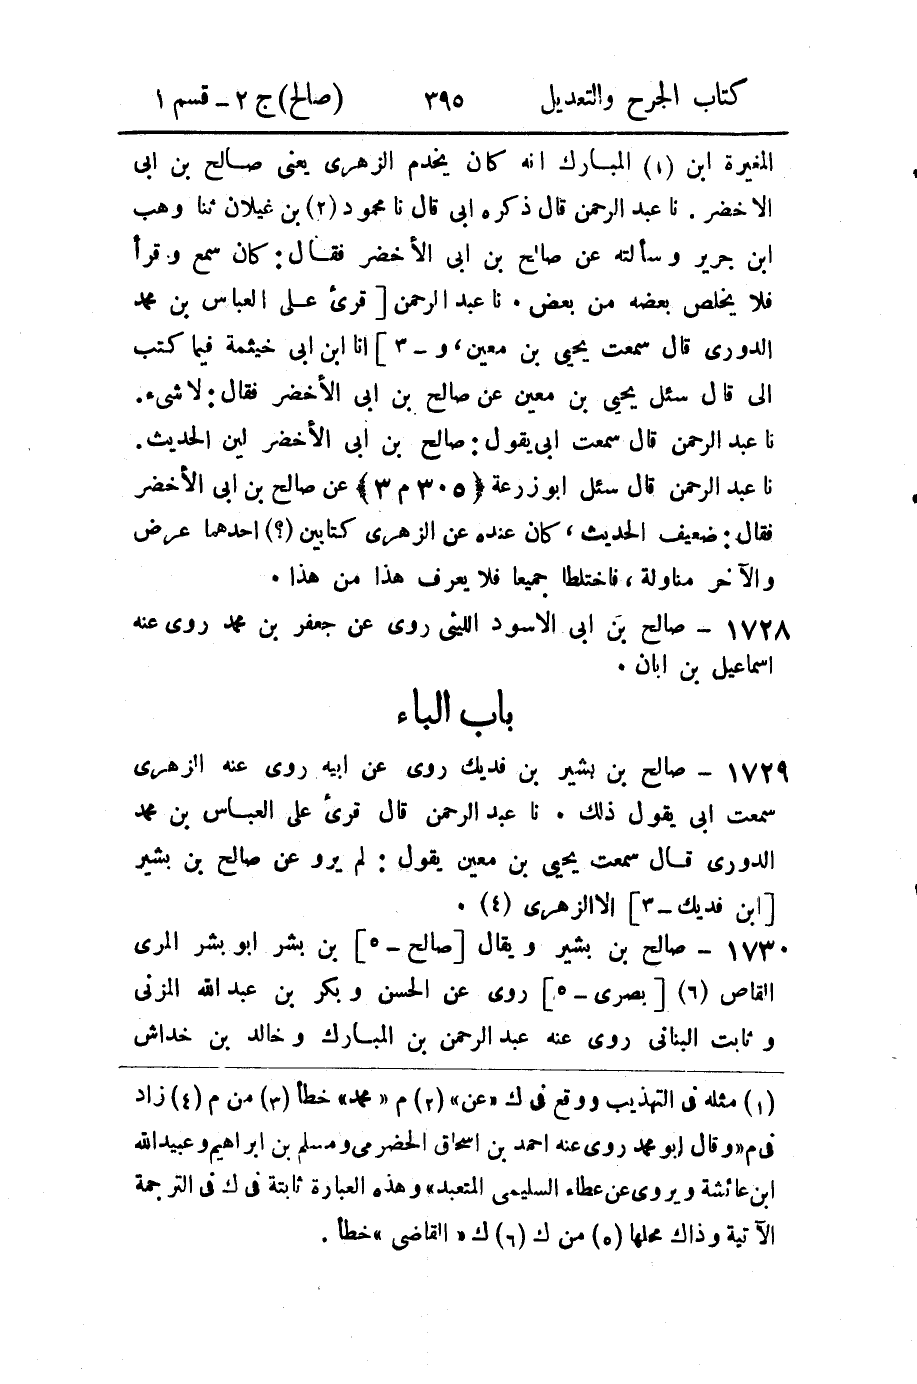 كتاب الجرح والتعديل ٣٩٥ (صالح) ج ٢ - قسم ١
المغيرة ابن (١) المبارك انه كان يخدم الزهرى يعنى صالح بن ابى
الاخضر . نا عبد الرحمن قال ذكره ابى قال نا محمود (٢) بن غيلان ثنا وهب
ابن جرير وسألته عن صالح بن ابى الأخضر فقال : كان سمع وقرأ
فلا يخلص بعضه من بعض . نا عبد الرحمن [ قرئ على العباس بن محمد
الدورى قال سمعت يحيى بن معين ، و - ٣ ] انا ابن ابى خيثمة فيما كتب
الى قال سئل يحيى بن معين عن صالح بن ابى الأخضر فقال : لاشىء .
نا عبد الرحمن قال سمعت ابى يقول : صالح بن ابى الأخضر لين الحديث .
نا عبد الرحمن قال سئل ابو زرعة ﴿ ٣٠٥ م ٣ ﴾ عن صالح بن ابى الأخضر
فقال : ضعيف الحديث ، كان عنده عن الزهرى كتابين (؟) احدهما عرض
والآخر مناولة ، فاختلطا جميعا فلا يعرف هذا من هذا .
١٧٢٨ - صالح بن ابى الاسود الليثى روى عن جعفر بن محمد روى عنه
اسماعيل بن ابان .
باب الباء
١٧٢٩ - صالح بن بشير بن فديك روى عن ابيه روى عنه الزهرى
سمعت ابى يقول ذلك . نا عبد الرحمن قال قرئ على العباس بن محمد
الدورى قال سمعت يحيى بن معين يقول : لم يرو عن صالح بن بشير
[ ابن فديك - ٣ ] الا الزهرى (٤) .
١٧٣٠ - صالح بن بشير ويقال [ صالح - ٥ ] بن بشر ابو بشر المرى
القاص (٦) [ بصرى - ٥ ] روى عن الحسن وبكر بن عبد الله المزنى
وثابت البنانى روى عنه عبد الرحمن بن المبارك وخالد بن خداش
(١) مثله فى التهذيب ووقع فى ك «عن» (٢) م « محمد» خطأ (٣) من م (٤) زاد
فى م «وقال ابو محمد روى عنه احمد بن اسحاق الحضرمى ومسلم بن ابراهيم وعبيد الله
ابن عائشة ويروى عن عطاء السليمى المتعبد» وهذه العبارة ثابتة فى ك فى الترجمة
الآتية وذاك محلها (٥) من ك (٦) ك « القاضى » خطأ .